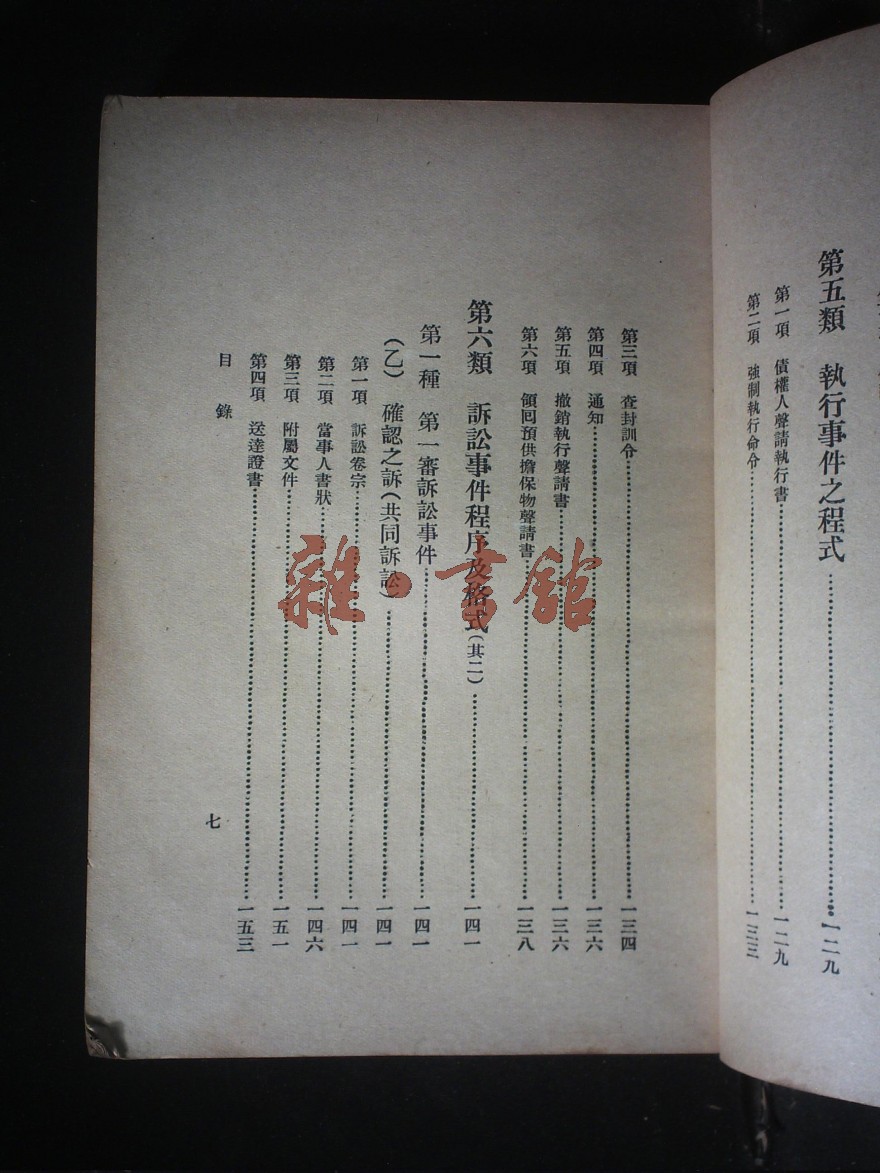 第五類　執行事件之程式……一二九
第一項　債權人聲請執行書……一二九
第二項　強制執行命令……一三三
第三項　查封訓令……一三四
第四項　通知……一三六
第五項　撤銷執行聲請書……一三六
第六項　領囘預供擔保物聲請書……一三八
第六類　訴訟事件程序及格式(其二)……一四一
第一種　第一審訴訟事件……一四一
(乙)　確認之訴(共同訴訟)……一四一
第一項　訴訟卷宗……一四一
第二項　當事人書狀……一四六
第三項　附屬文件……一五一
第四項　送達證書……一五三
目錄
七
雜·書館